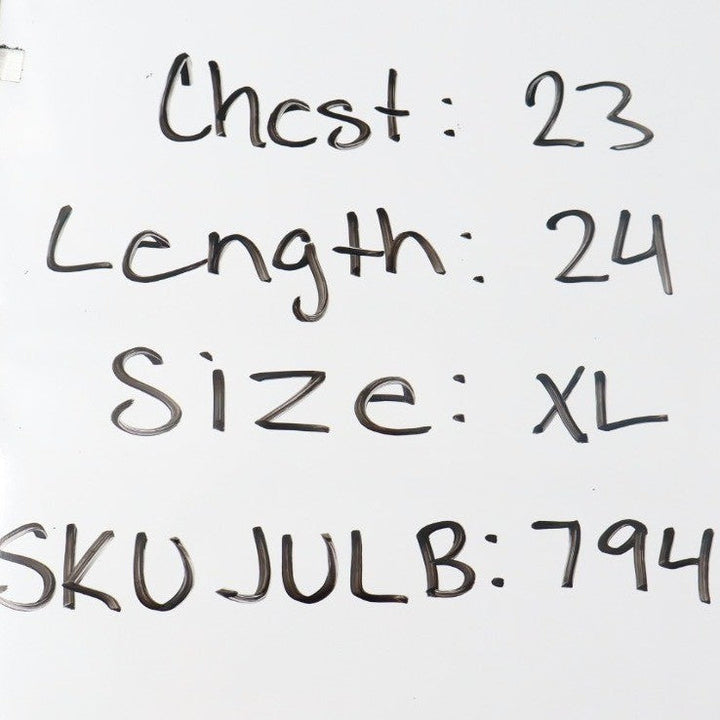 Chest: 23
Length: 24
Size: XL
SKU JULB: 794